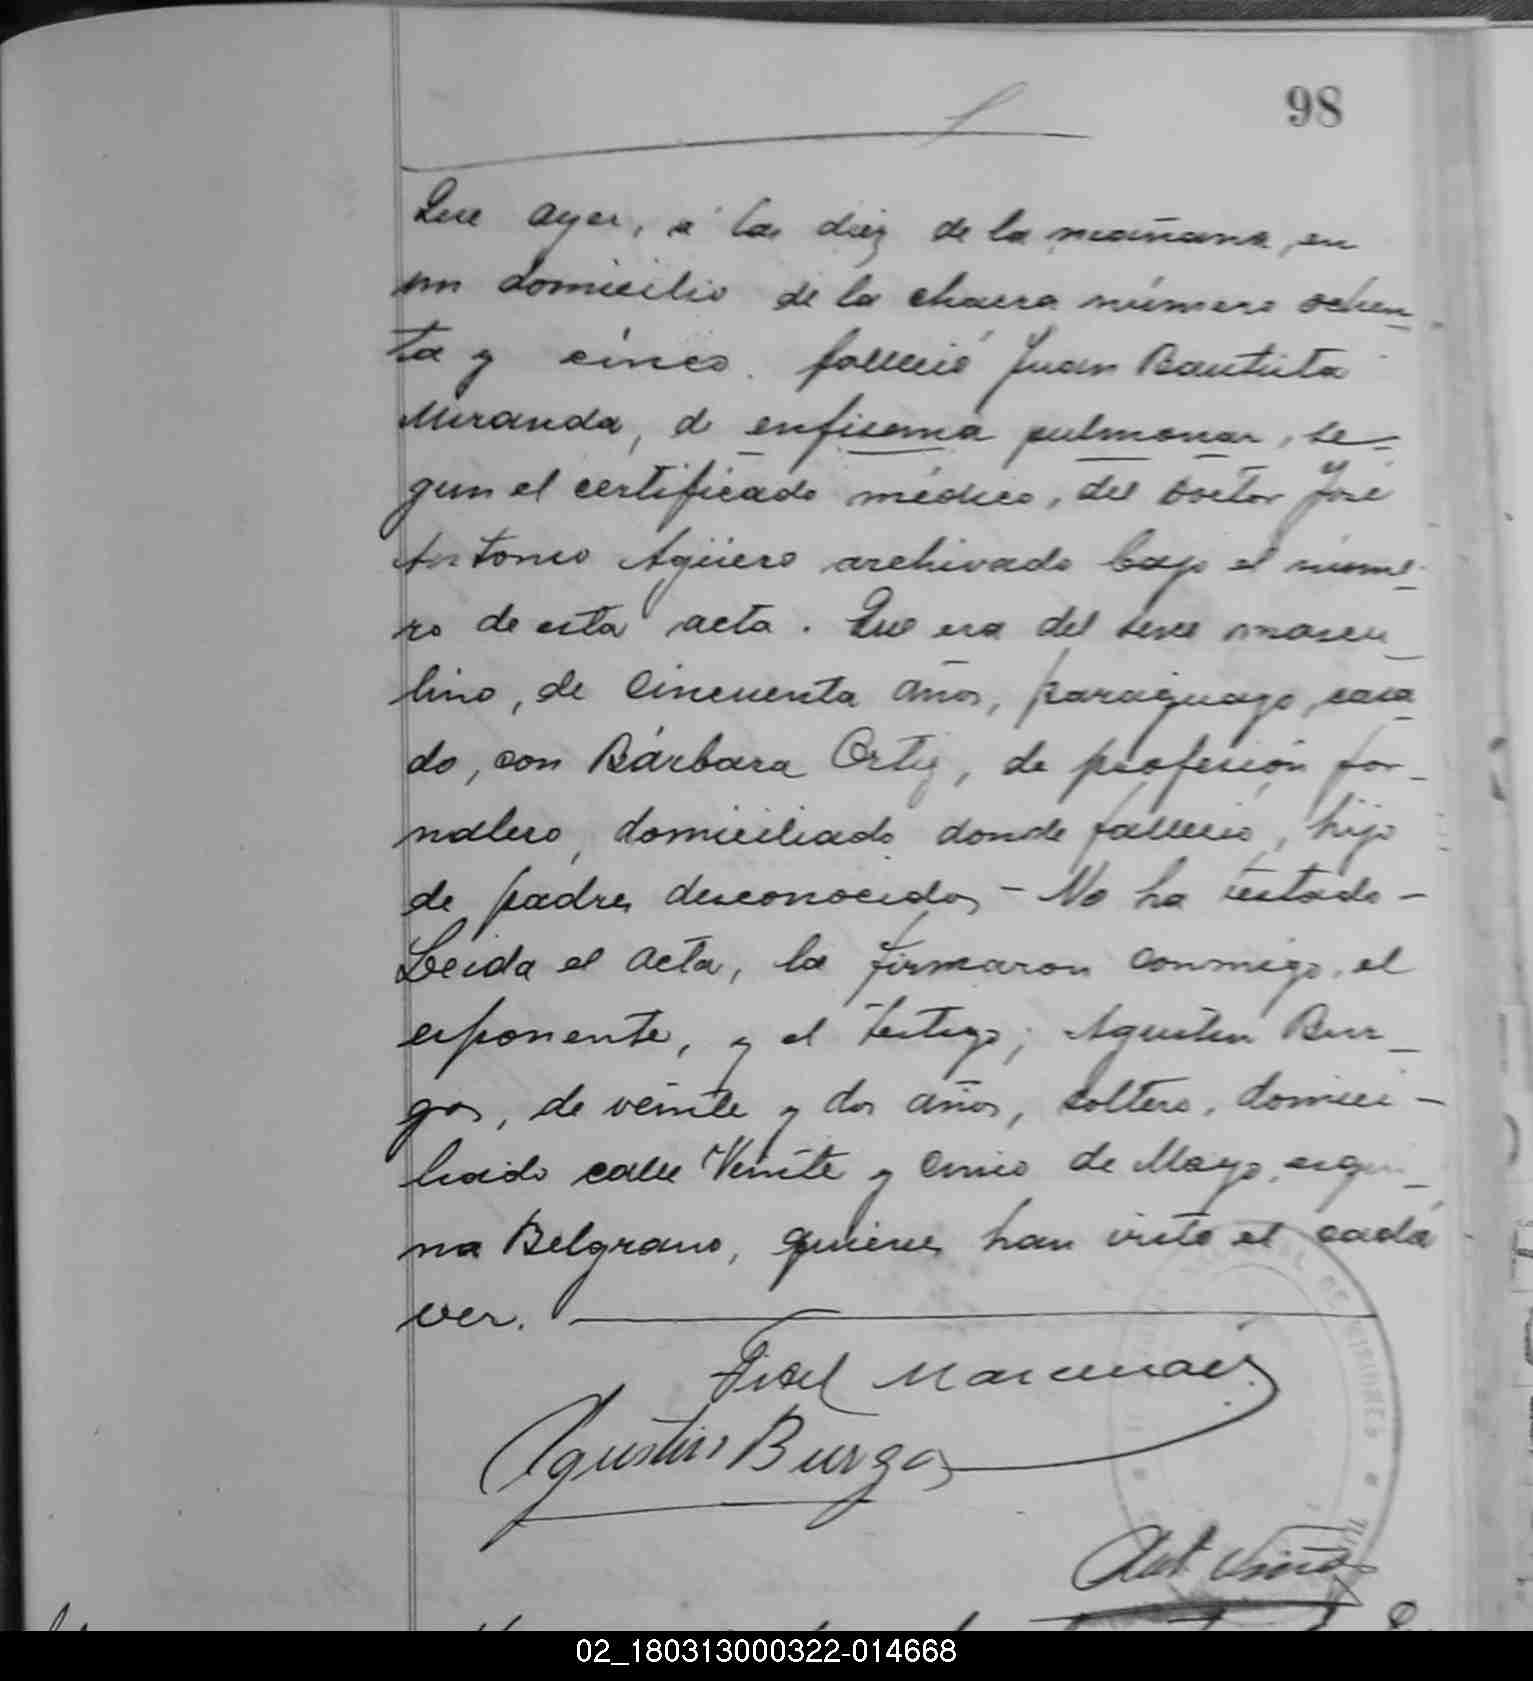 98
Que ayer, á las diez de la mañana, en
un domicilio de la chacra número ochen_
ta y cinco. falleció Juan Bautista
Miranda, de enfisema pulmonar, se_
gun el certificado médico, del doctor José
Antonio Agüero archivado bajo el núme_
ro de esta acta. Que era del sexo mascu_
lino, de cincuenta años, paraguayo, casa_
do, con Bárbara Ortiz, de profesión jor_
nalero, domiciliado donde falleció, hijo
de padres desconocidos - No ha testado -
Leida el acta, la firmaron conmigo, el
exponente, y el testigo; Agustin Bur_
gos, de veinte y dos años, soltero, domici-
liado calle Veinte y cinco de Mayo, esqui_
na Belgrano, quienes han visto el cadá
ver.
Fidel
Agustin Burgos
02_180313000322-014668